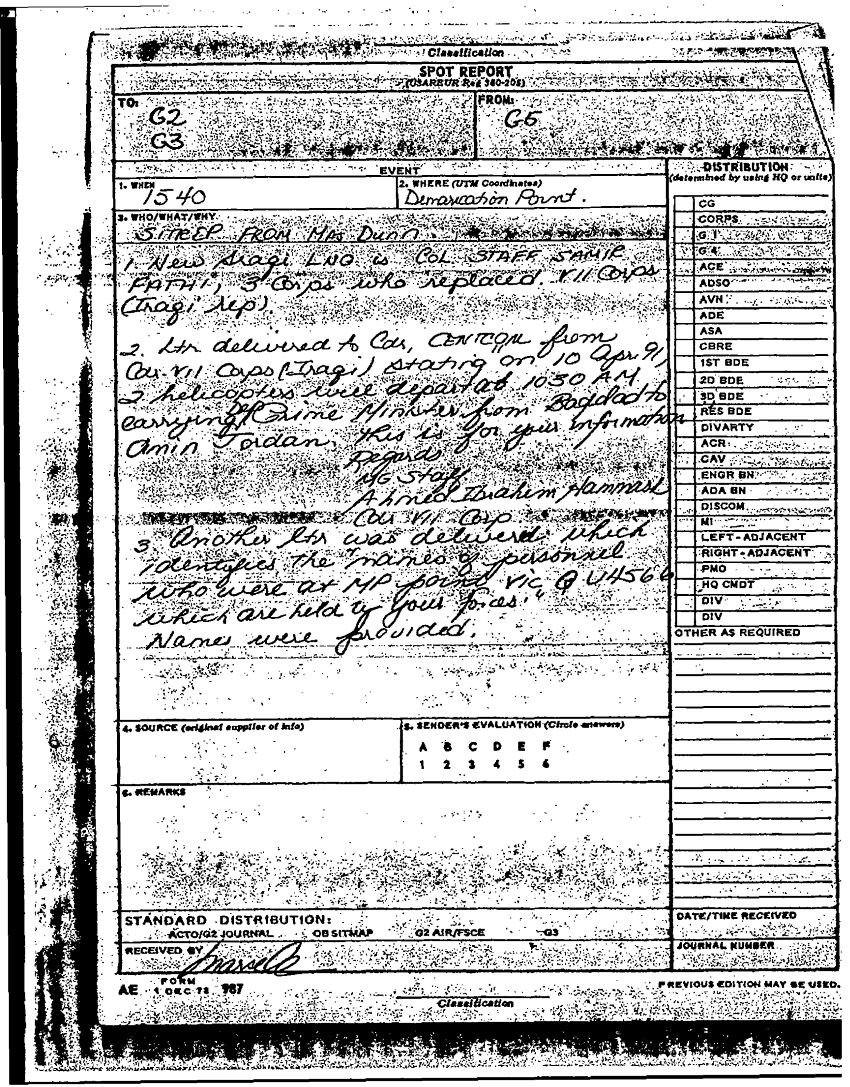 Classification
SPOT REPORT
(USAREUR Reg 380-205)
TO: G2
G3
FROM: G5
EVENT
1. WHEN
1540
2. WHERE (UTM Coordinates)
Demarcation Point.
3. WHO/WHAT/WHY
SITREP FROM MAJ Dunn.
1. New Iraqi LNO is COL STAFF SAMIR
FATHI, 3 Corps who replaced VII Corps
(Iraqi rep).
2. Ltr delivered to Cdr, CENTCOM from
Cdr VII Corps (Iraqi) stating "on 10 Apr 91,
2 helicopters will depart at 1030 AM
carrying Dep Prime Minister from Bagdad to
Amin Jordan, this is for your information
Regards
MG Staff
Ahmed Ibrahim Hammash
Cdr VII Corp
3. Another ltr was delivered which
identifies the "names of personnel
who were at MP point vic QU4566
which are held by your forces."
Names were provided.
4. SOURCE (original supplier of info)
5. SENDER'S EVALUATION (Circle answers)
A B C D E F
1 2 3 4 5 6
6. REMARKS
STANDARD DISTRIBUTION:
ACTO/G2 JOURNAL OB SITMAP G2 AIR/FSCE G3
RECEIVED BY
DISTRIBUTION
(determined by using HQ or units)
CG
CORPS
G 1
G 4
ACE
ADSO
AVN
ADE
ASA
CBRE
1ST BDE
2D BDE
3D BDE
RES BDE
DIVARTY
ACR
CAV
ENGR BN
ADA BN
DISCOM
MI
LEFT-ADJACENT
RIGHT-ADJACENT
PMO
HQ CMDT
DIV
DIV
OTHER AS REQUIRED
DATE/TIME RECEIVED
JOURNAL NUMBER
AE FORM 1 DEC 73 987
PREVIOUS EDITION MAY BE USED.
Classification